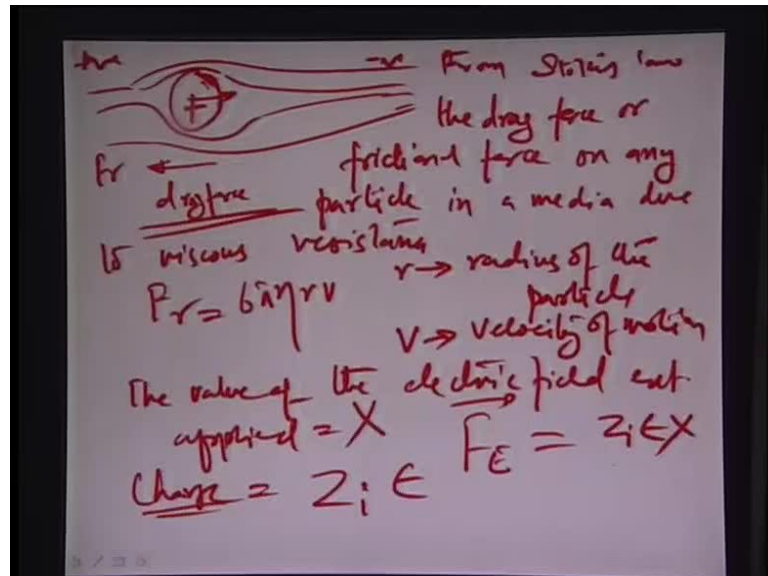 +ve -ve From Stokes law
+ the drag force or
Fr ← frictional force on any
drag force particle in a media due
to viscous resistance
r → radius of the
particle
Fr = 6πηrv
V → velocity of motion
The value of the electric field ext.
applied = X
FE = Zi∈X
Charge = Zi ∈